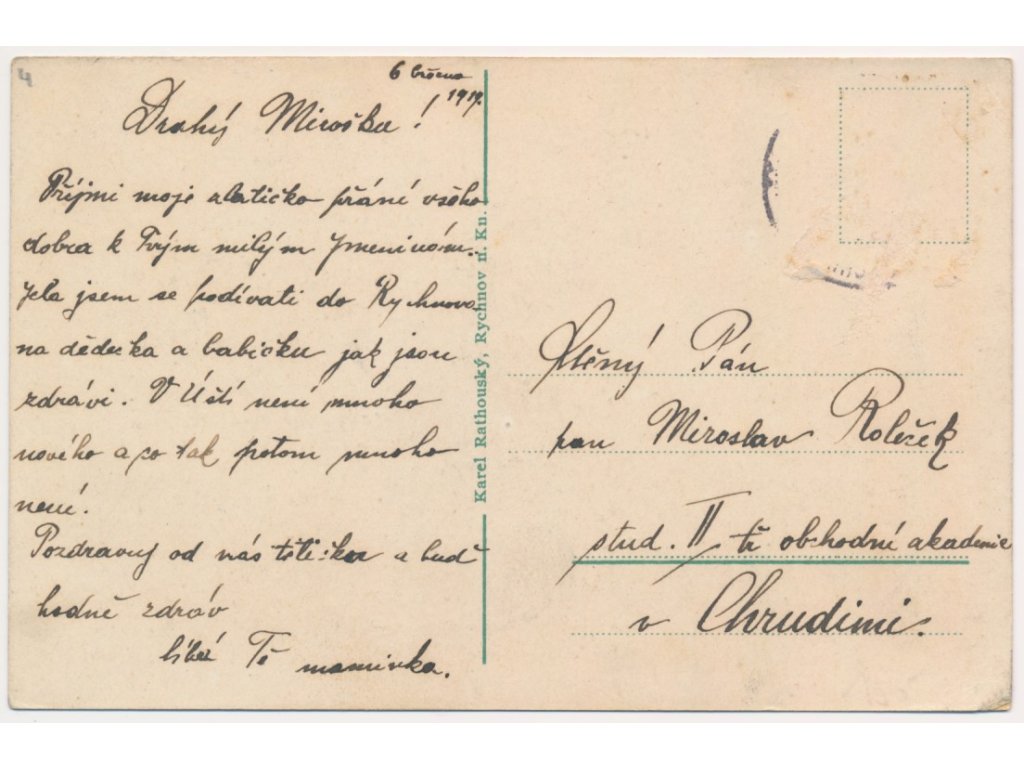 4
6 března
1919.
Drahý Mirošku!
Přijmi moje zlatíčko přání všeho
dobra k Tvým milým jmeninám.
Jela jsem se podívati do Rychnova
na dědečka a babičku jak jsou
zdrávi. V Ústí není mnoho
nového a co tak potom mnoho
není.
Pozdravuj od nás tetičku a buď
hodně zdráv
líbá Tě maminka.
Karel Rathouský, Rychnov n. Kn.
Ctěný Pán
pan Miroslav Roleček
stud. II tř obchodní akademie
v Chrudimi.